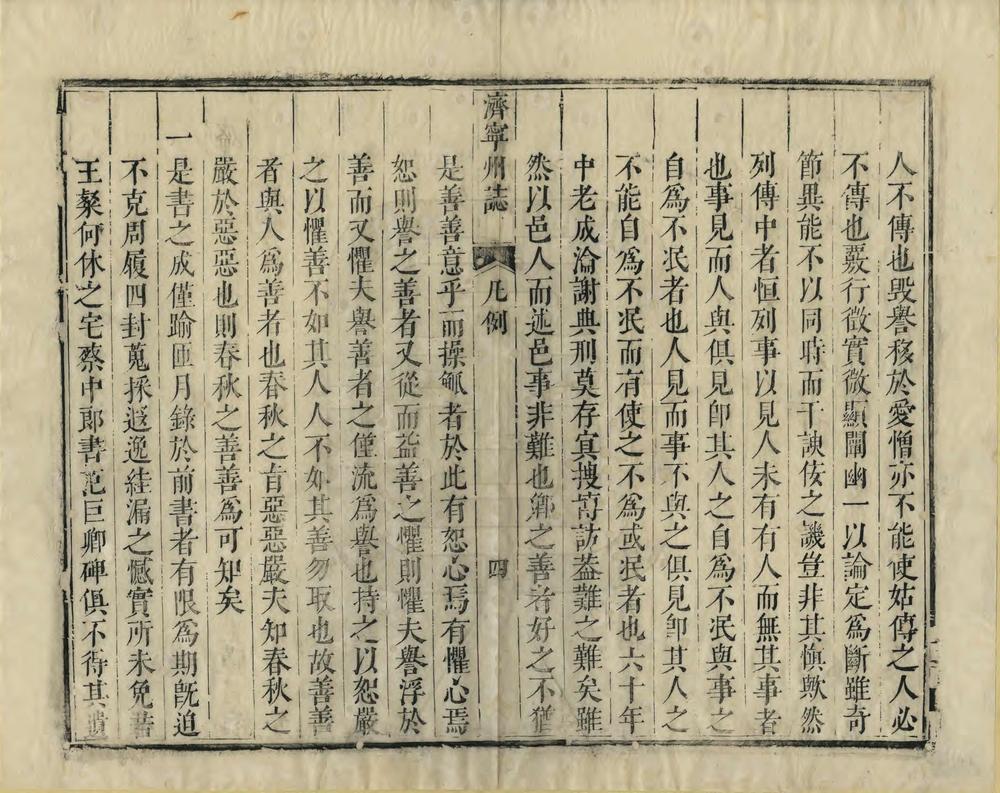 人不傳也毀譽移於愛憎亦不能使姑傳之人必
不傳也覈行徵實微顯闡幽一以論定為斷雖奇
節異能不以同時而干諛佞之譏豈非其慎歟然
列傳中者恒列事以見人未有有人而無其事者
也事見而人與俱見卽其人之自為不泯與事之
自為不泯者也人見而事不與之俱見卽其人之
不能自為不泯而有使之不為或泯者也六十年
中老成淪謝典刑莫存㝠搜富訪葢難之難矣雖
然以邑人而述邑事非難也鄉之善者好之不猶
濟寧州誌 凡例 四
是善善意乎而操觚者於此有恕心焉有懼心焉
恕則譽之善者又從而益善之懼則懼夫譽浮於
善而又懼夫譽善者之僅流為譽也持之以恕嚴
之以懼善不如其人人不如其善勿取也故善善
者與人為善者也春秋之肯惡惡嚴夫知春秋之
嚴於惡惡也則春秋之善善為可知矣
一是書之成僅踰匝月錄於前書者有限為期旣迫
不克周履四封蒐採遐逸絓漏之憾實所未免書
王粲何休之宅蔡中郎書范巨卿碑俱不得其遺